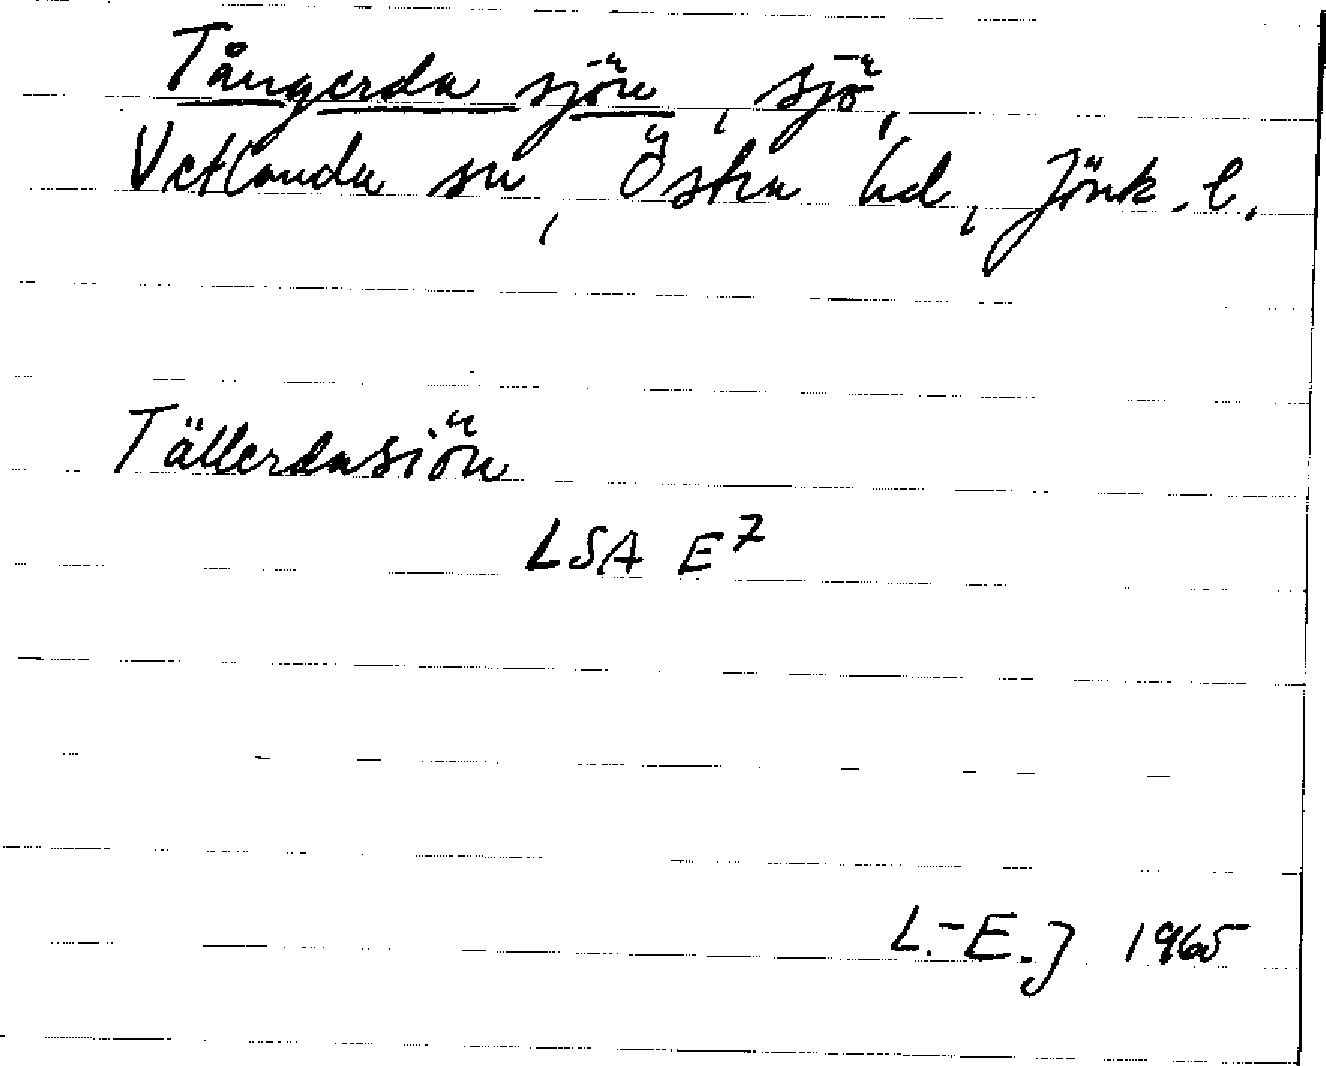 Tångerda sjön, sjö,
Vetlanda sn, Östra hd, Jönk. l.
Tällerdasiön
LSA E7
L.-E.J 1965